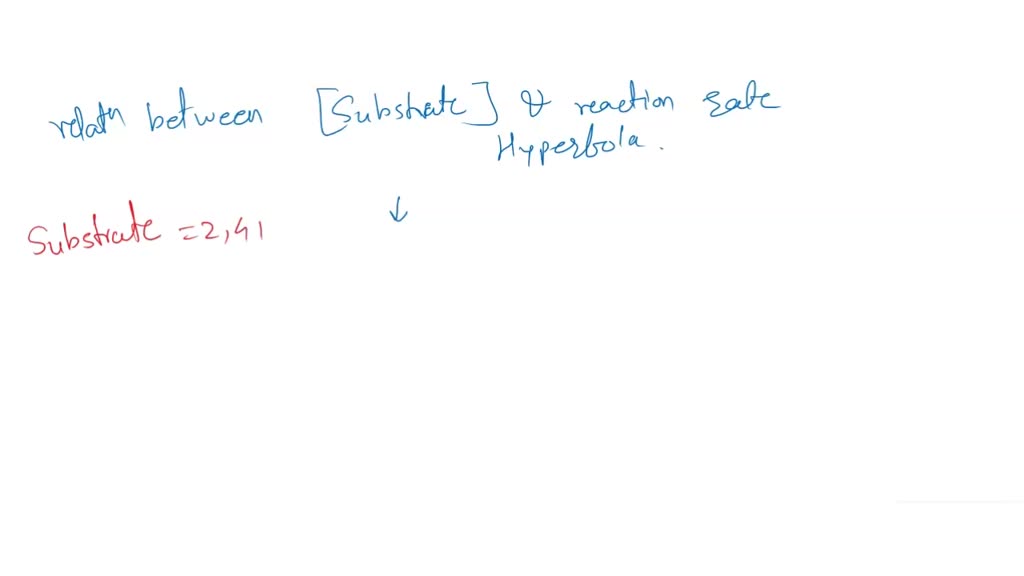 relatn between [Substrate] & reaction rate
Hyperbola.
↓
Substrate = 2,41